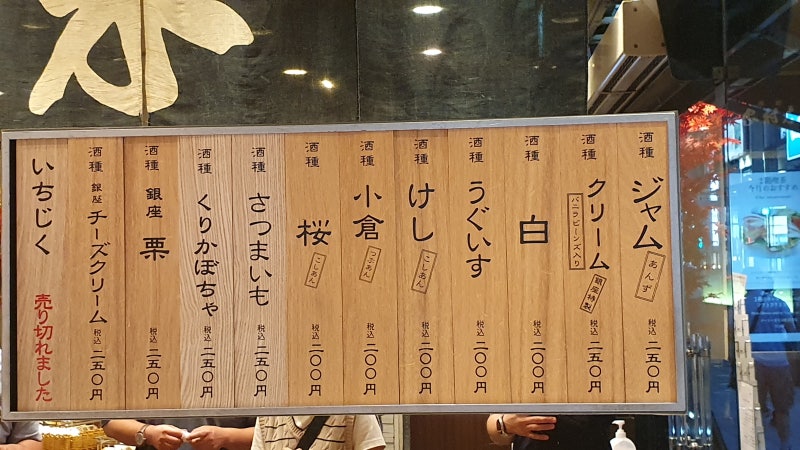 酒種 ジャム あんず 税込 二五〇円
酒種 クリーム バニラビーンズ入り 銀座特製 税込 二五〇円
酒種 白 税込 二〇〇円
酒種 うぐいす 税込 二〇〇円
酒種 けし こしあん 税込 二〇〇円
酒種 小倉 つぶあん 税込 二〇〇円
酒種 桜 こしあん 税込 二〇〇円
酒種 さつまいも 税込 二五〇円
酒種 くりかぼちゃ 税込 二五〇円
酒種 銀座 栗 税込 二五〇円
酒種 銀座 チーズクリーム 税込 二五〇円
いちじく 売り切れました
今月のおすすめ